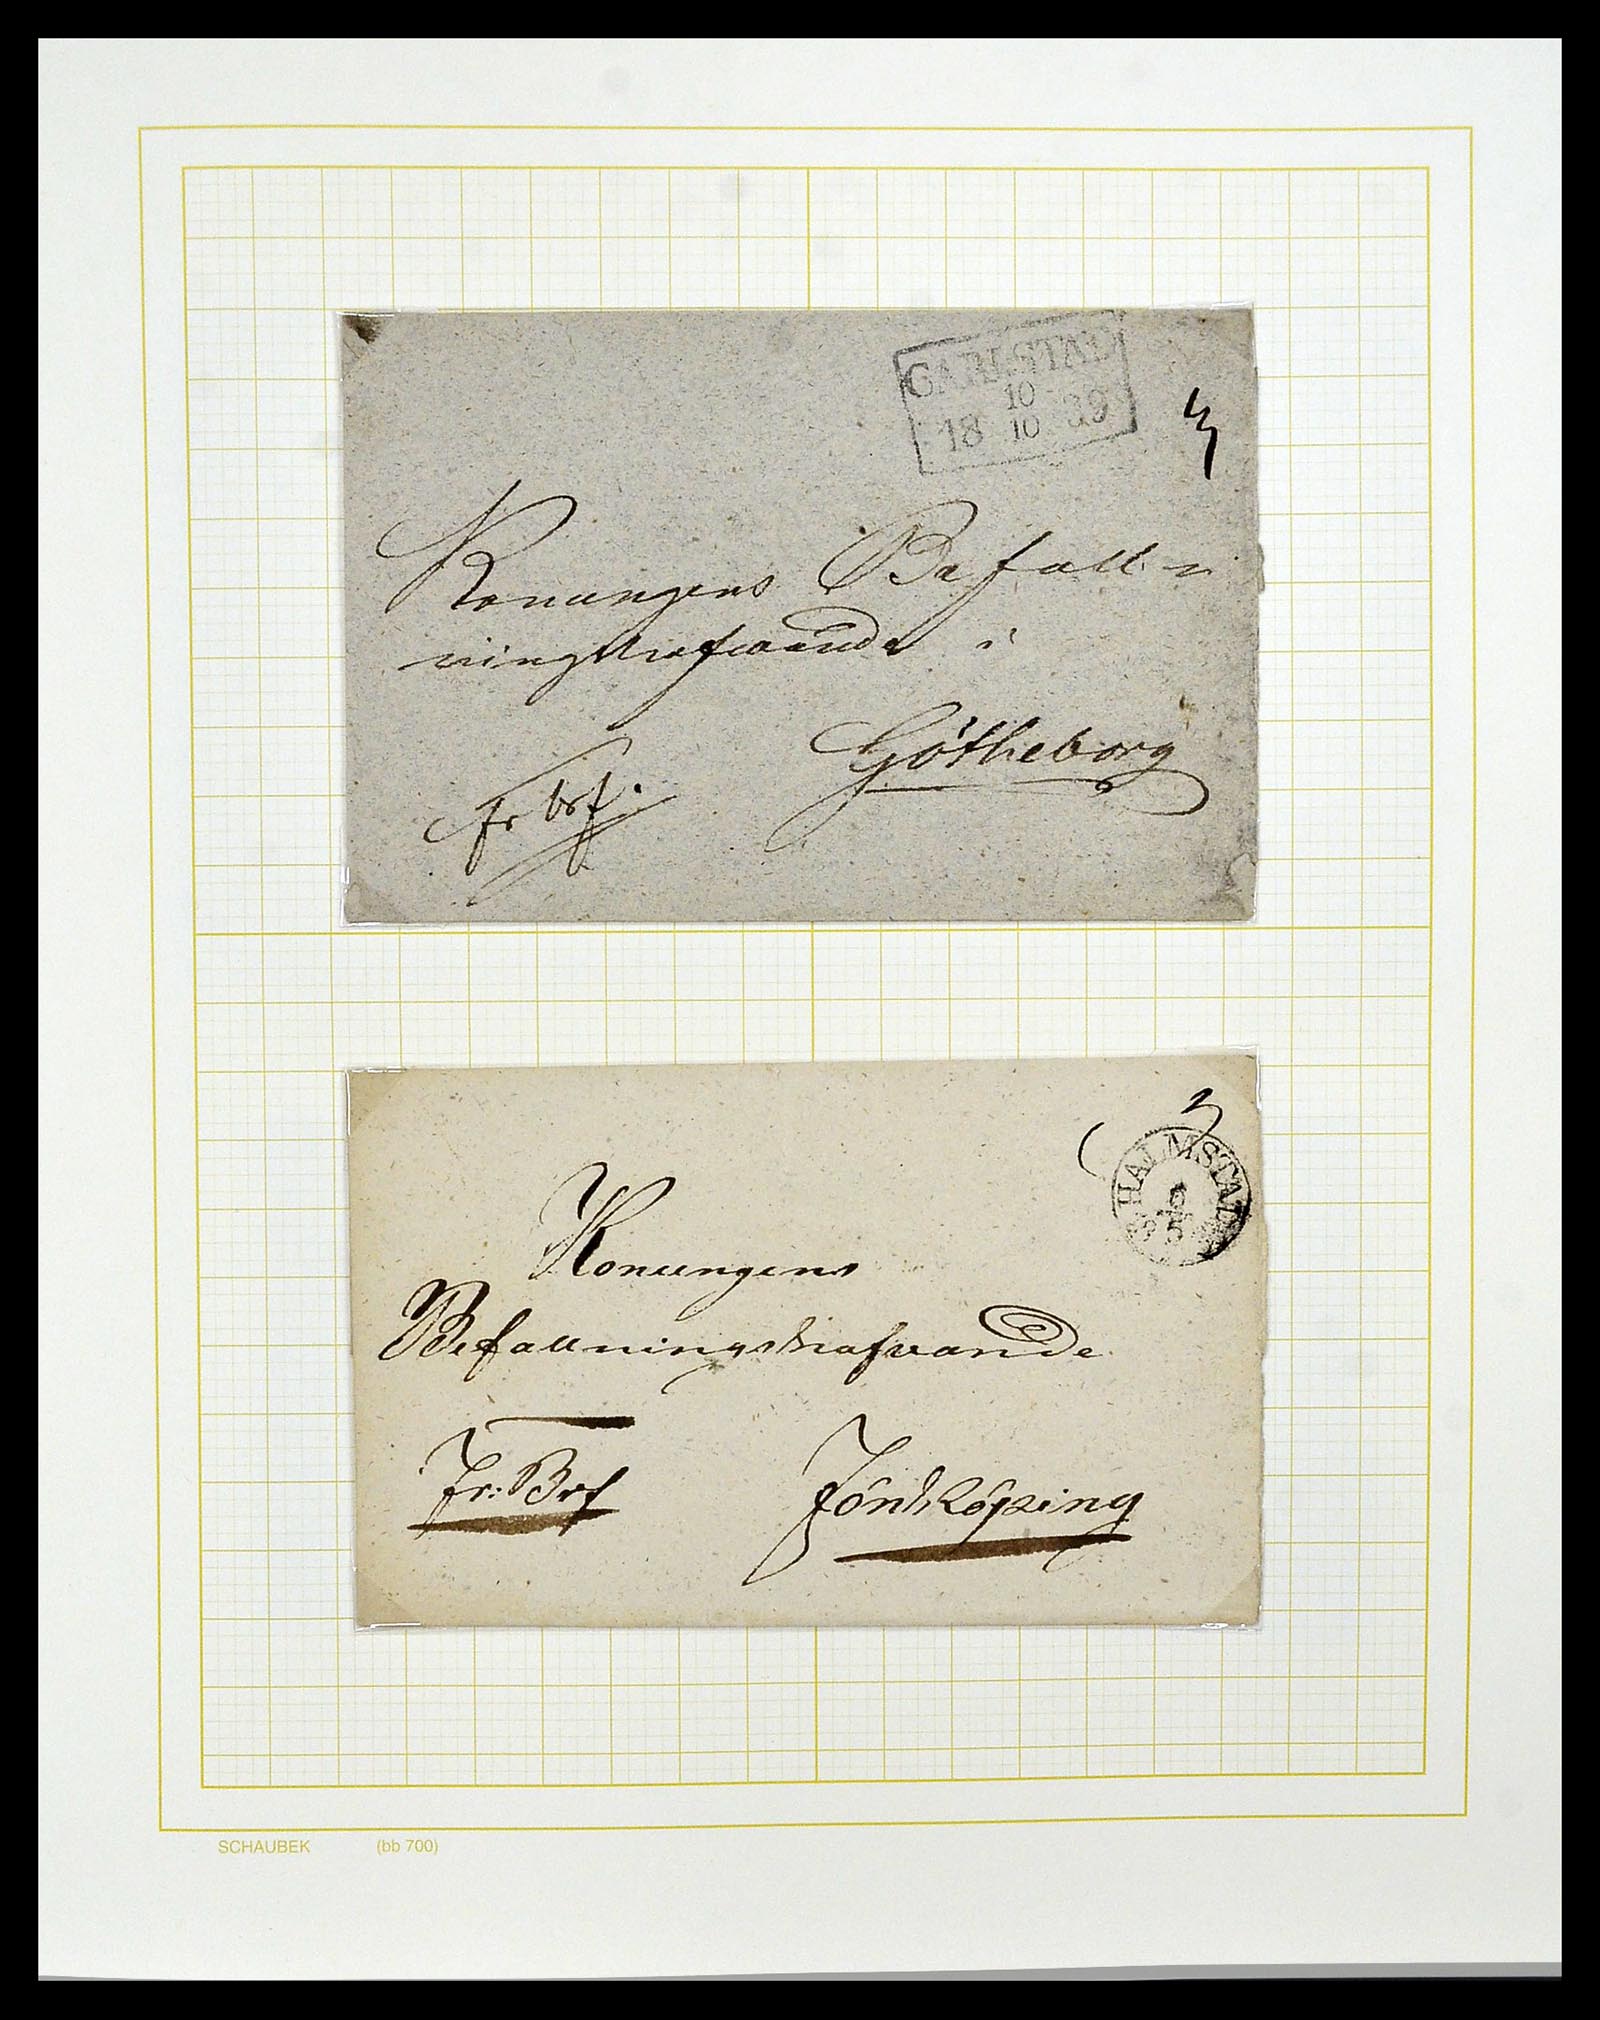 CARLSTAD
10
18 10 39
Konungens Befall-
ningshafwande i
Götheborg
Fr brf.
HALMSTAD
5
Konungens
Befallningshafvande
Fr: Brf
Jönköping
SCHAUBEK (bb 700)